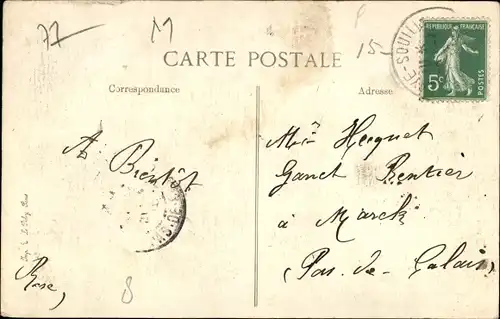 77
M
15
CARTE POSTALE
Correspondance
Adresse
REPUBLIQUE FRANÇAISE
5c
POSTES
A Bientôt
Rose
8
Hecquet
Ganet Rentier
à Marck
(Pas-de-Calais)